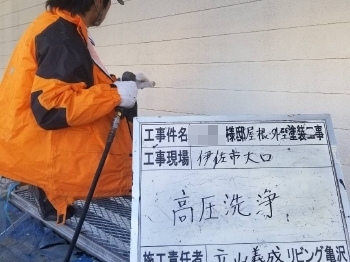 工事件名 様邸屋根・外壁塗装工事
工事現場 伊佐市大口
高圧洗浄
施工責任者 立山義盛 リビング亀沢